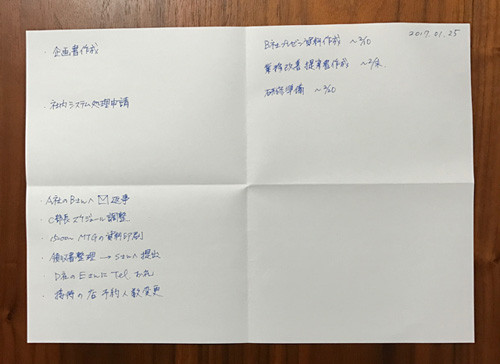 2017.01.25
・企画書作成
・社内システム処理申請
B社プレゼン資料作成 ～2/10
業務改善提案書作成 ～2/末
研修準備 ～2/20
・A社のBさんへ✉返事
・C部長スケジュール調整
・15:00～ MTGの資料印刷
・領収書整理→Sさんへ提出
・D社のEさんにTel お礼
・接待の店予約人数変更